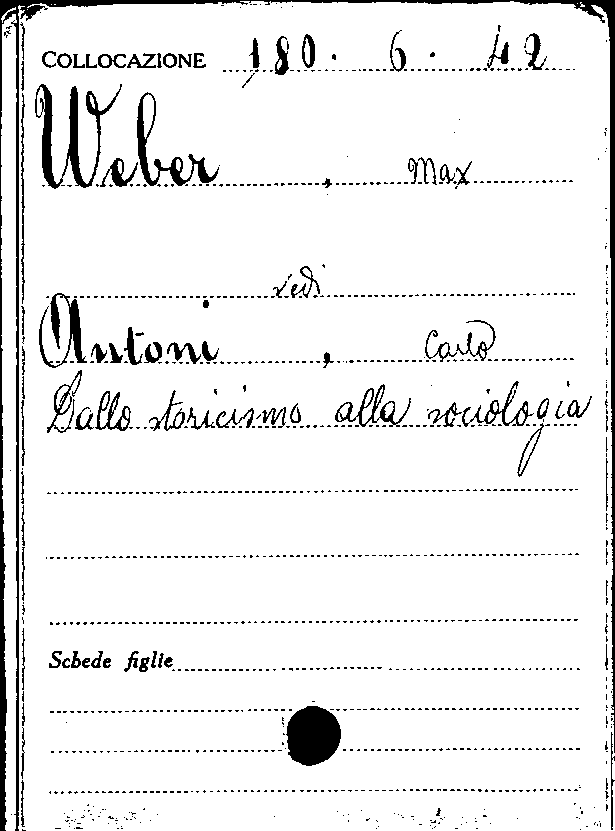 COLLOCAZIONE 180. 6. 42
Weber, Max
Vedi
Antoni, Carlo
Dallo storicismo alla sociologia
Schede figlie